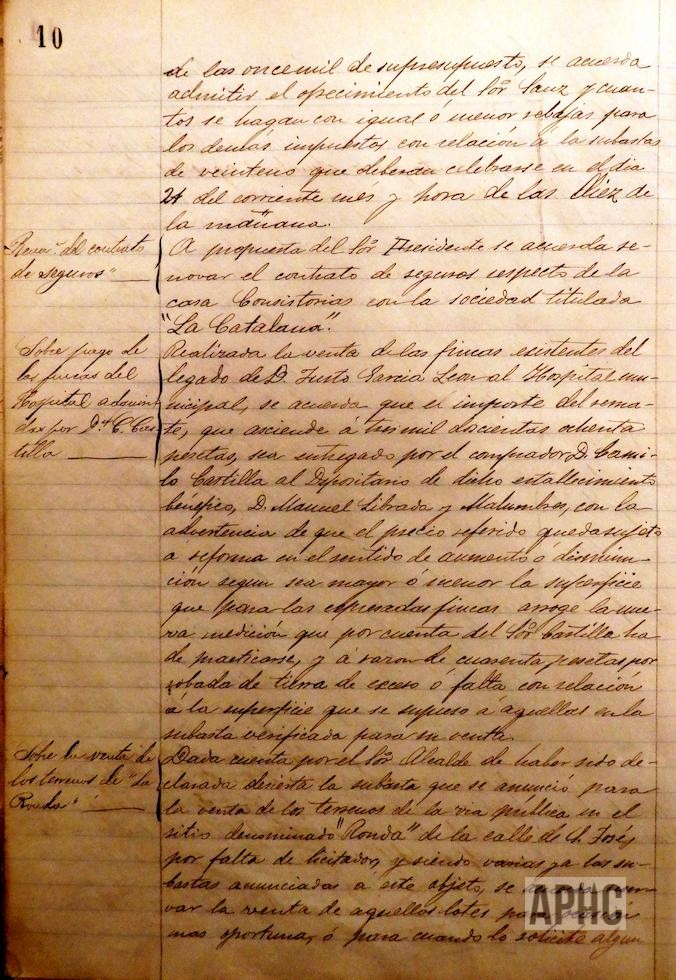 10
de las oncemil de supresupuesto, se acuerda
admitir el ofrecimiento del Sor. Sanz y cuan-
tos se hagan con igual ó menor rebajas para
los demás impuestos con relación á la subastas
de veinteno que deberan celebrarse en el dia
24 del corriente més y hora de las Diez de
la mañana.
Renon. del contrato
de seguros"
A propuesta del Sor. Presidente se acuerda re-
novar el contrato de seguros respecto de la
casa Consistorias con la sociedad titulada
"La Catalana".
Sobre pago de
las fincas del
Hospital adquiri
das por D. C. Cas-
tilla
Realizada la venta de las fincas existentes del
legado de D. Justo Garcia Leon al Hospital mu-
nicipal, se acuerda que el importe del rema-
te, que asciende á tres mil doscientas ochenta
pesetas, sea entregado por el comprador, D. Cami-
lo Castilla al Depositario de dicho establecimiento
benéfico, D. Manuel Librada y Malumbres, con la
advertencia de que el precio referido queda sujeto
a reforma en el sentido de aumento ó disminu-
ción segun sea mayor ó menor la superficie
que para las expresadas fincas arroge la nue-
va medición que por cuenta del Sor. Castilla ha
de practicarse, y á razon de cuarenta pesetas por
robada de tierra de exceso ó falta con relación
á la superficie que se supuso á aquellas en la
subasta verificada para su venta.
Sobre la venta de
los terrenos de "La
Ronda"
Dada cuenta por el Sor. Alcalde de haber sido de-
clarada desierta la subasta que se anunció para
la venta de los terrenos de la via pública en el
sitio denominado "Ronda" de la calle de S. José,
por falta de licitador, y siendo varias ya las su-
bastas anunciadas á este objeto, se acuerda reser-
var la venta de aquellos lotes para ocasión
mas oportuna, ó para cuando lo solicite algun
APHC